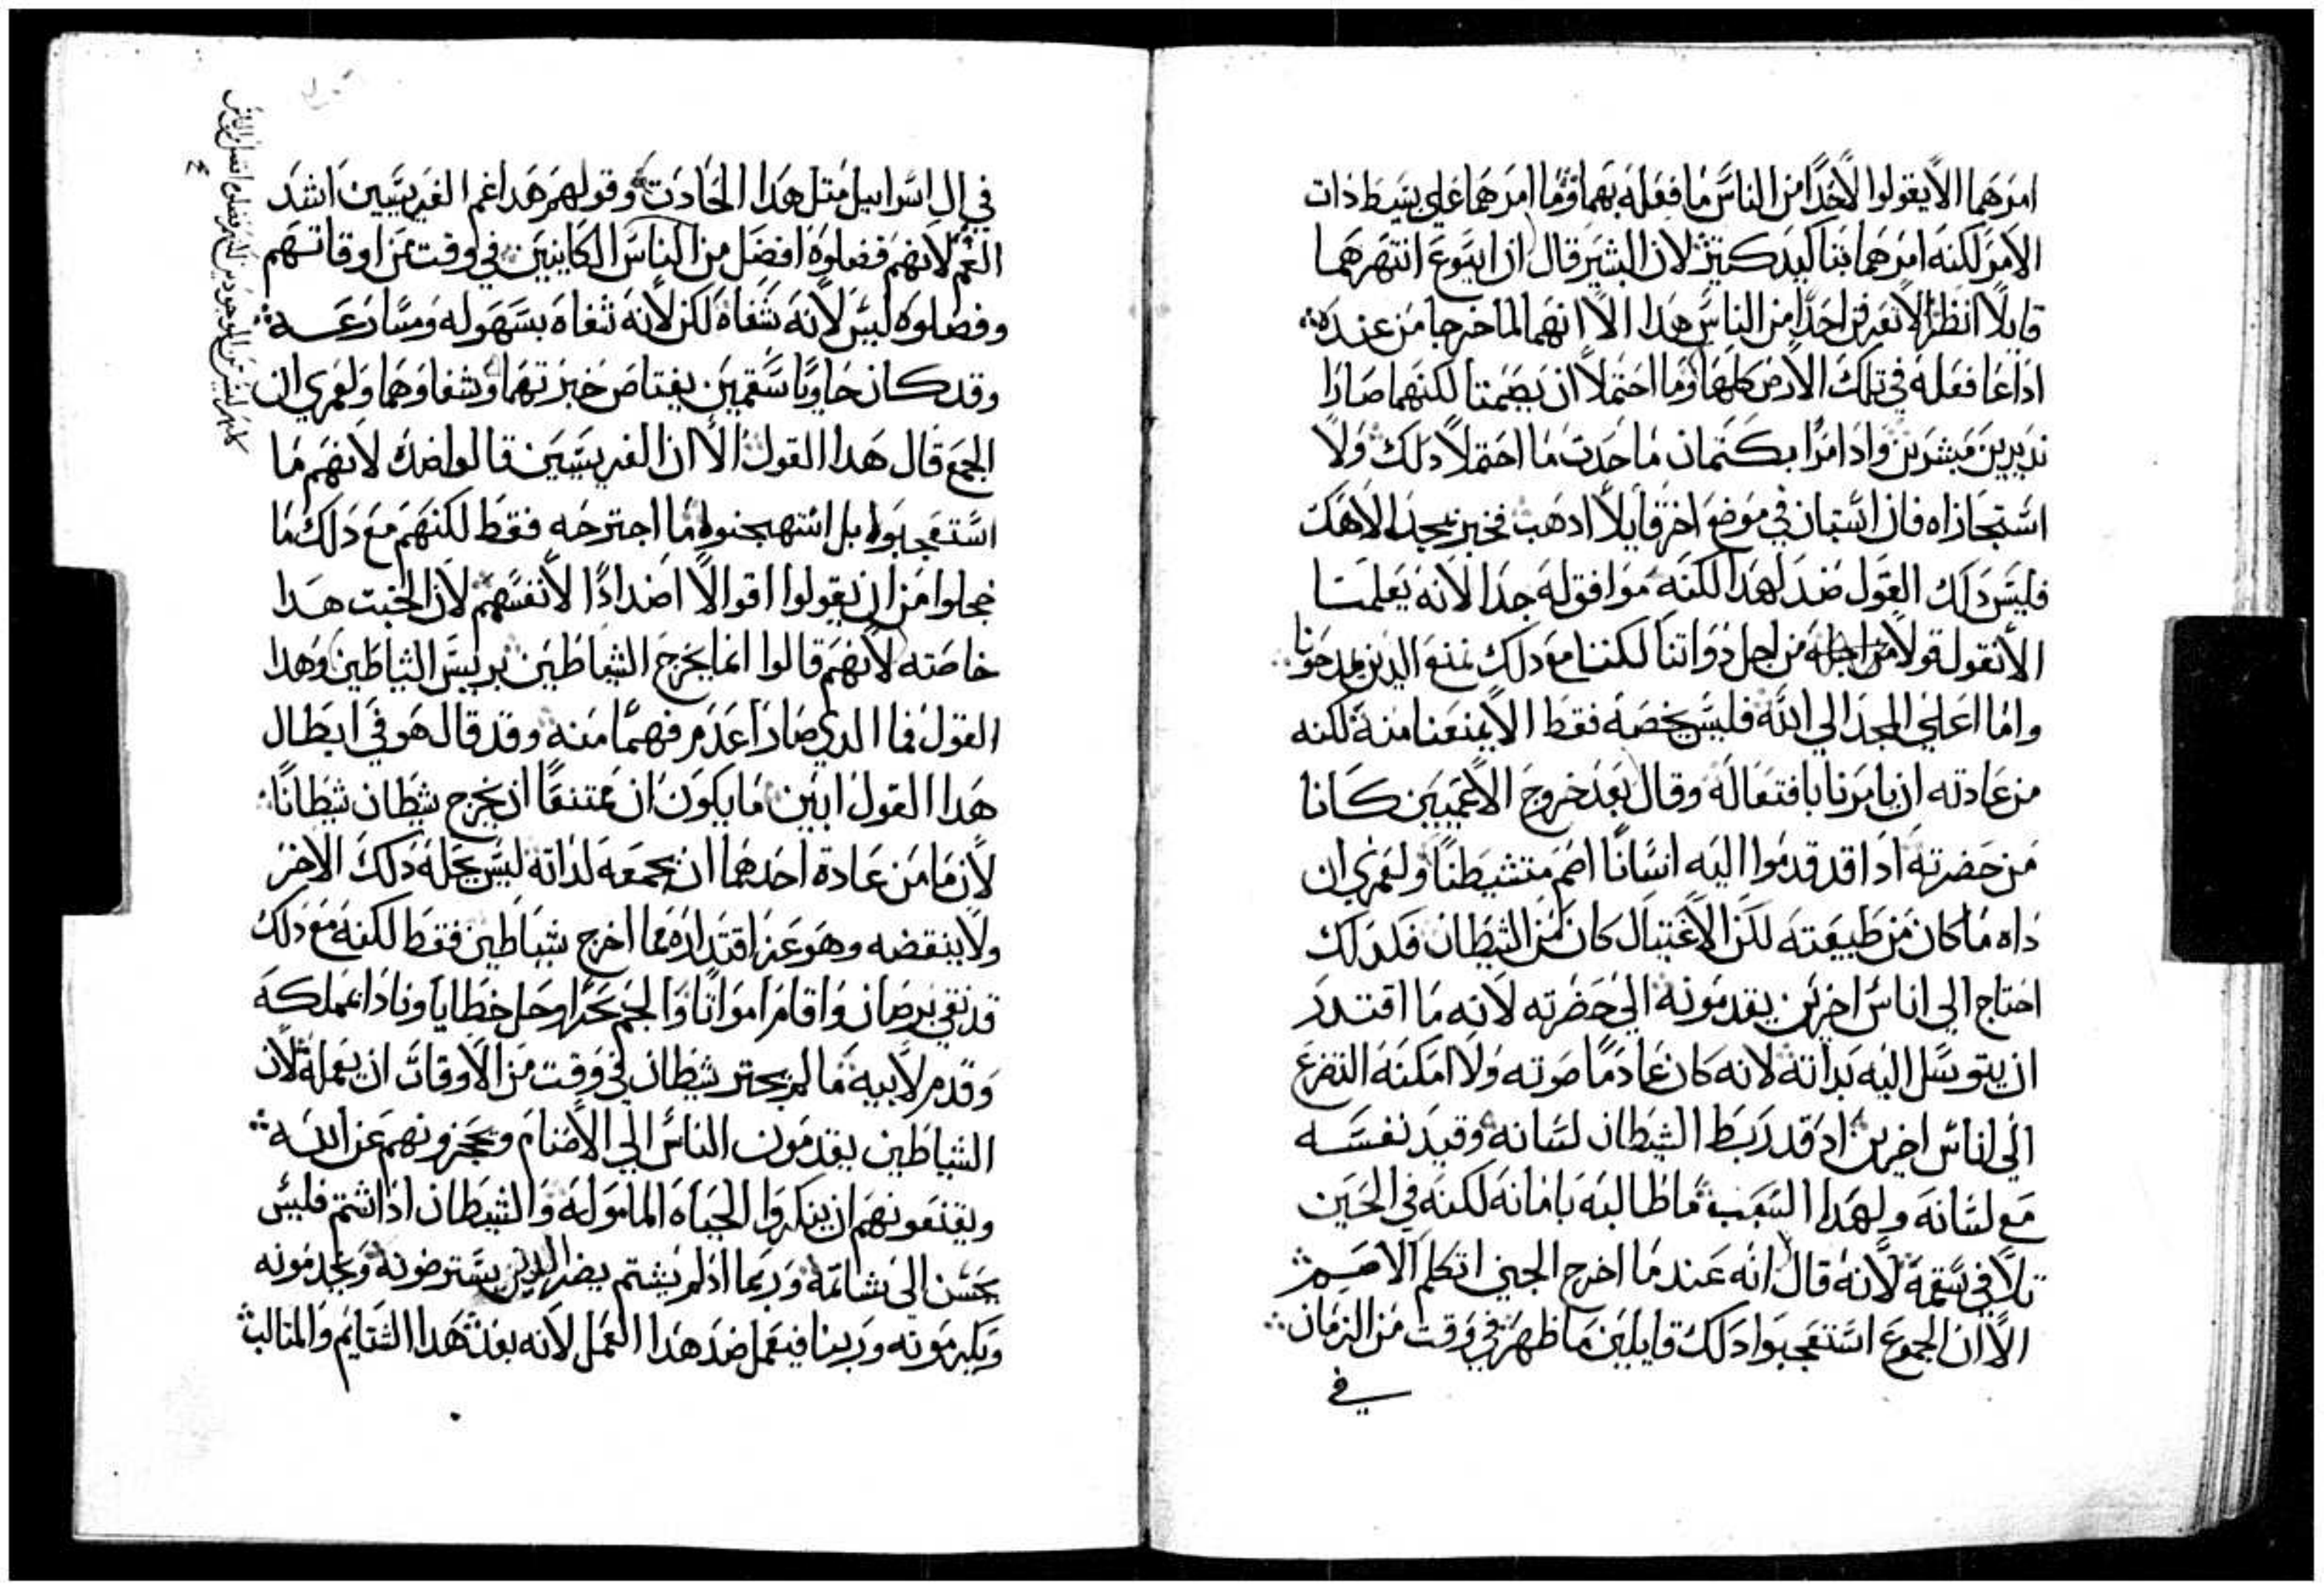 امرهما الا يقولوا لاحدا من الناس ما فعله بهما وما امرهما علي بسيط ذات
الامر لكنه امرهما بتاكيد كتير لان البشير قال ان ايسوع انتهرهما
قايلا انظرا لا تعرفن احدا من الناس هدا الا انهما لما خرجا من عنده
اداعا فعله في تلك الارض كلها وما احتملا ان يصمتا لكنهما صارا
نديرين مبشرين واد امرا بكتمان ما حدت ما احتملا دلك ولا
استجازاه فان استبان في موضع اخر قايلا ادهب فخبر بمجد الاهك
فليس دلك القول ضد لهدا لكنه موافق له جدا لانه يعلمنا
الا نقول قولا من اجل دواتنا لكننا مع دلك نمنع الدين يمدحونا
واما اعلي المجد الي الله فليس يخصه فقط الا يمنعنا منه لكنه
من عادته ان يامرنا بافتعاله وقال بعد خروج الاعميين كانا
من حضرته ادا قد قدموا اليه انسانا اصم متشيطنا ولعمري ان
داه ما كان من طبيعته لكن الاغتيال كان من الشيطان فلدلك
احتاج الي اناس اخرين يقدمونه الي حضرته لانه ما اقتدر
ان يتوسل اليه بداته لانه كان عادما صوته ولا امكنه التضرع
الي اناس اخرين اد قد ربط الشيطان لسانه وقيد نفسه
مع لسانه ولهدا السبب ما طالبه بامانه لكنه في الحين
تلافي سقمه لانه قال انه عندما اخرج الجني اتكلم الاصم
الا ان الجموع استعجبوا دلك قايلين ما ظهر في وقت من الزمان
في
في ال اسراييل متل هدا الحادت وقولهم هدا غم الفريسيين اشد
الغم لانهم فضلوه افضل من الناس الكاينين في وقت من اوقاتهم
وفضلوه ليس لانه شفاه لكن لانه شفاه بسهوله ومسارعه
وقد كان حاويا سقمين يعتاص خبرتهما وشفاوهما ولعمري ان
الجمع قال هدا القول الا ان الفريسيين قالوا ضده لانهم ما
استعجبوا بل استهجنوا ما اجترحه فقط لكنهم مع دلك ما
خجلوا من ان يقولوا اقوالا اضدادا لانفسهم لان الخبت هدا
خاصته لانهم قالوا انما يخرج الشياطين بريس الشياطين وهدا
القول فما الدي صار اعدم فهما منه وقد قال هو في ابطال
هدا القول ابين ما يكون ان ممتنعا ان يخرج شيطان شيطانا
لان ما من عادة احدهما ان يجمعه لداته ليس يحله دلك الاخر
ولا ينقضه وهو عز اقتداره مما اخرج شياطين فقط لكنه مع دلك
قد نقي برصان واقام امواتا والجم بحرا وحل خطايا ونادا بمملكه
وقدم لابيه ما لم يجتر شيطان في وقت من الاوقات ان يعمله لان
الشياطين يقدمون الناس الي الاصنام ويحجزونهم عن الله
ويقنعونهم ان ينكروا الحياه المامولة والشيطان ادا شتم فليس
يحسن الي شاتمه وربما اد لم يشتم يضر الدين يسترضونه ويخدمونه
ويكرمونه وربنا فيعمل ضد هدا العمل لانه بعد هدا الشتايم والمتالب